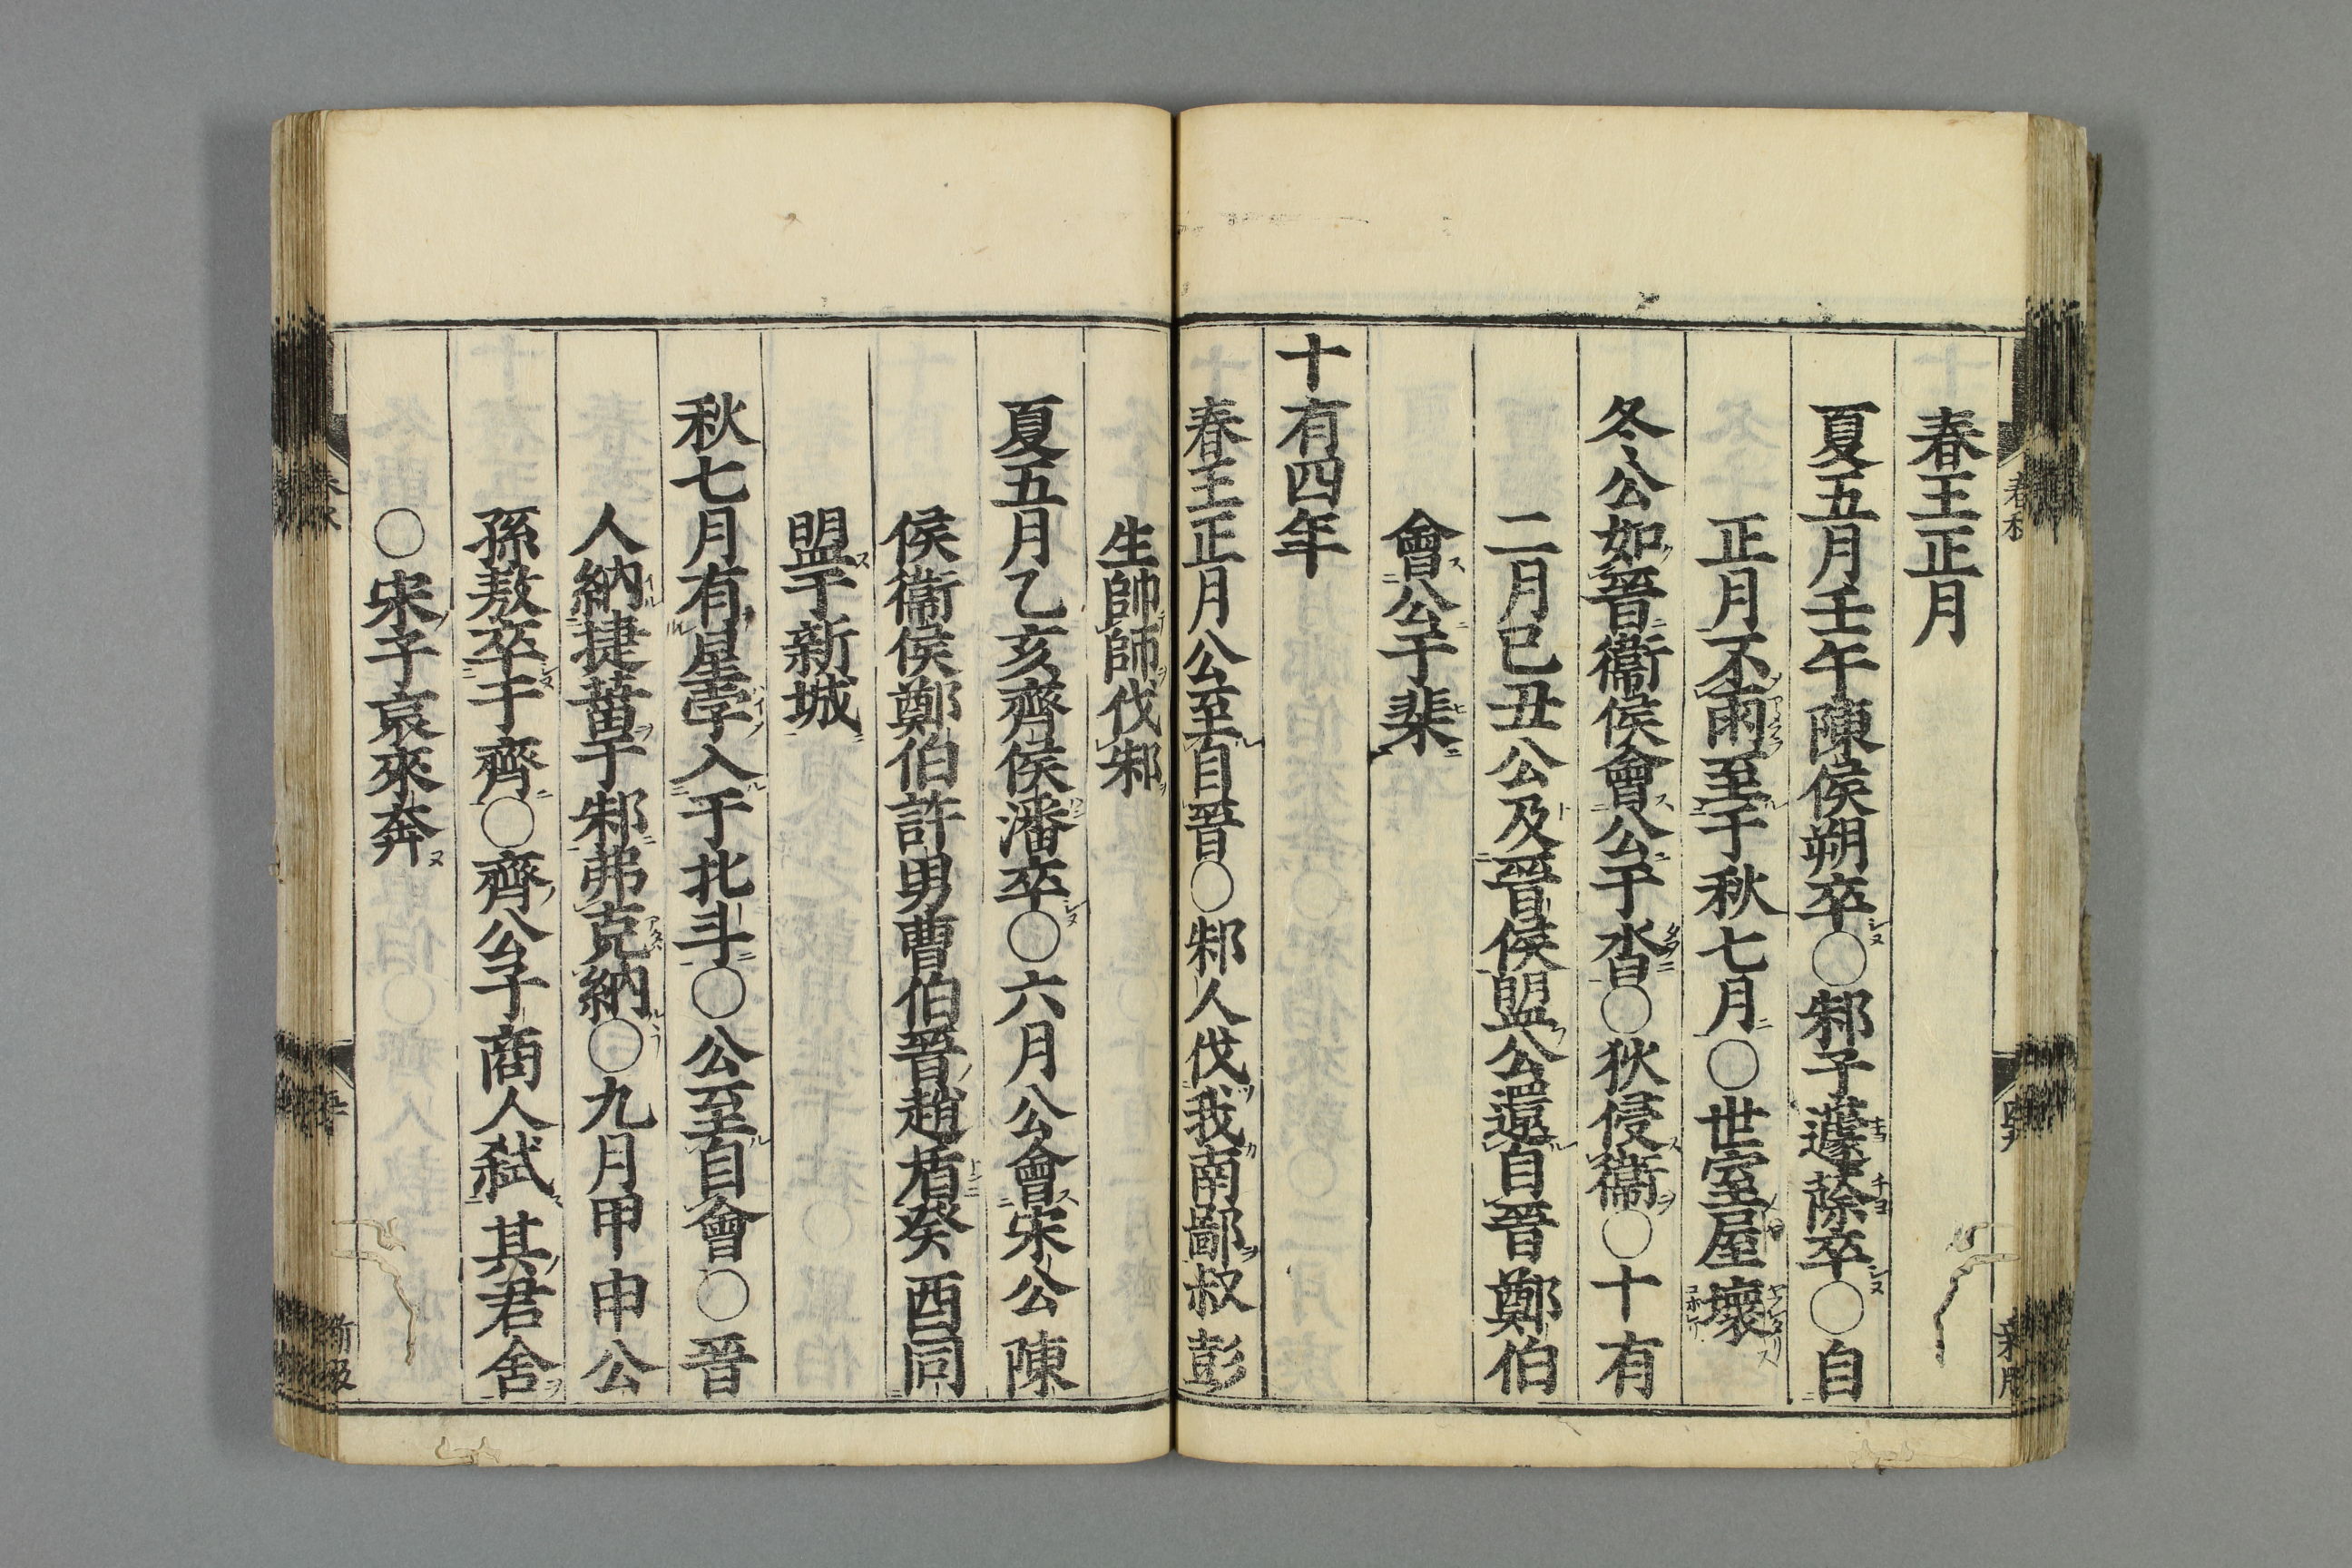 春王正月
夏五月壬午陳侯朔卒○邾子蘧蒢卒○自
正月不雨至于秋七月○世室屋壞
冬公如晉衞侯會公于沓○狄侵衞○十有
二月已丑公及晉侯盟公還自晉鄭伯
會公于棐
十有四年
春王正月公至自晉○邾人伐我南鄙叔彭
生帥師伐邾
夏五月乙亥齊侯潘卒○六月公會宋公陳
侯衞侯鄭伯許男曹伯晉趙盾癸酉同
盟于新城
秋七月有星孛入于北斗○公至自會○晉
人納捷菑于邾弗克納○九月甲申公
孫敖卒于齊○齊公子商人弑其君舍
○宋子哀來奔